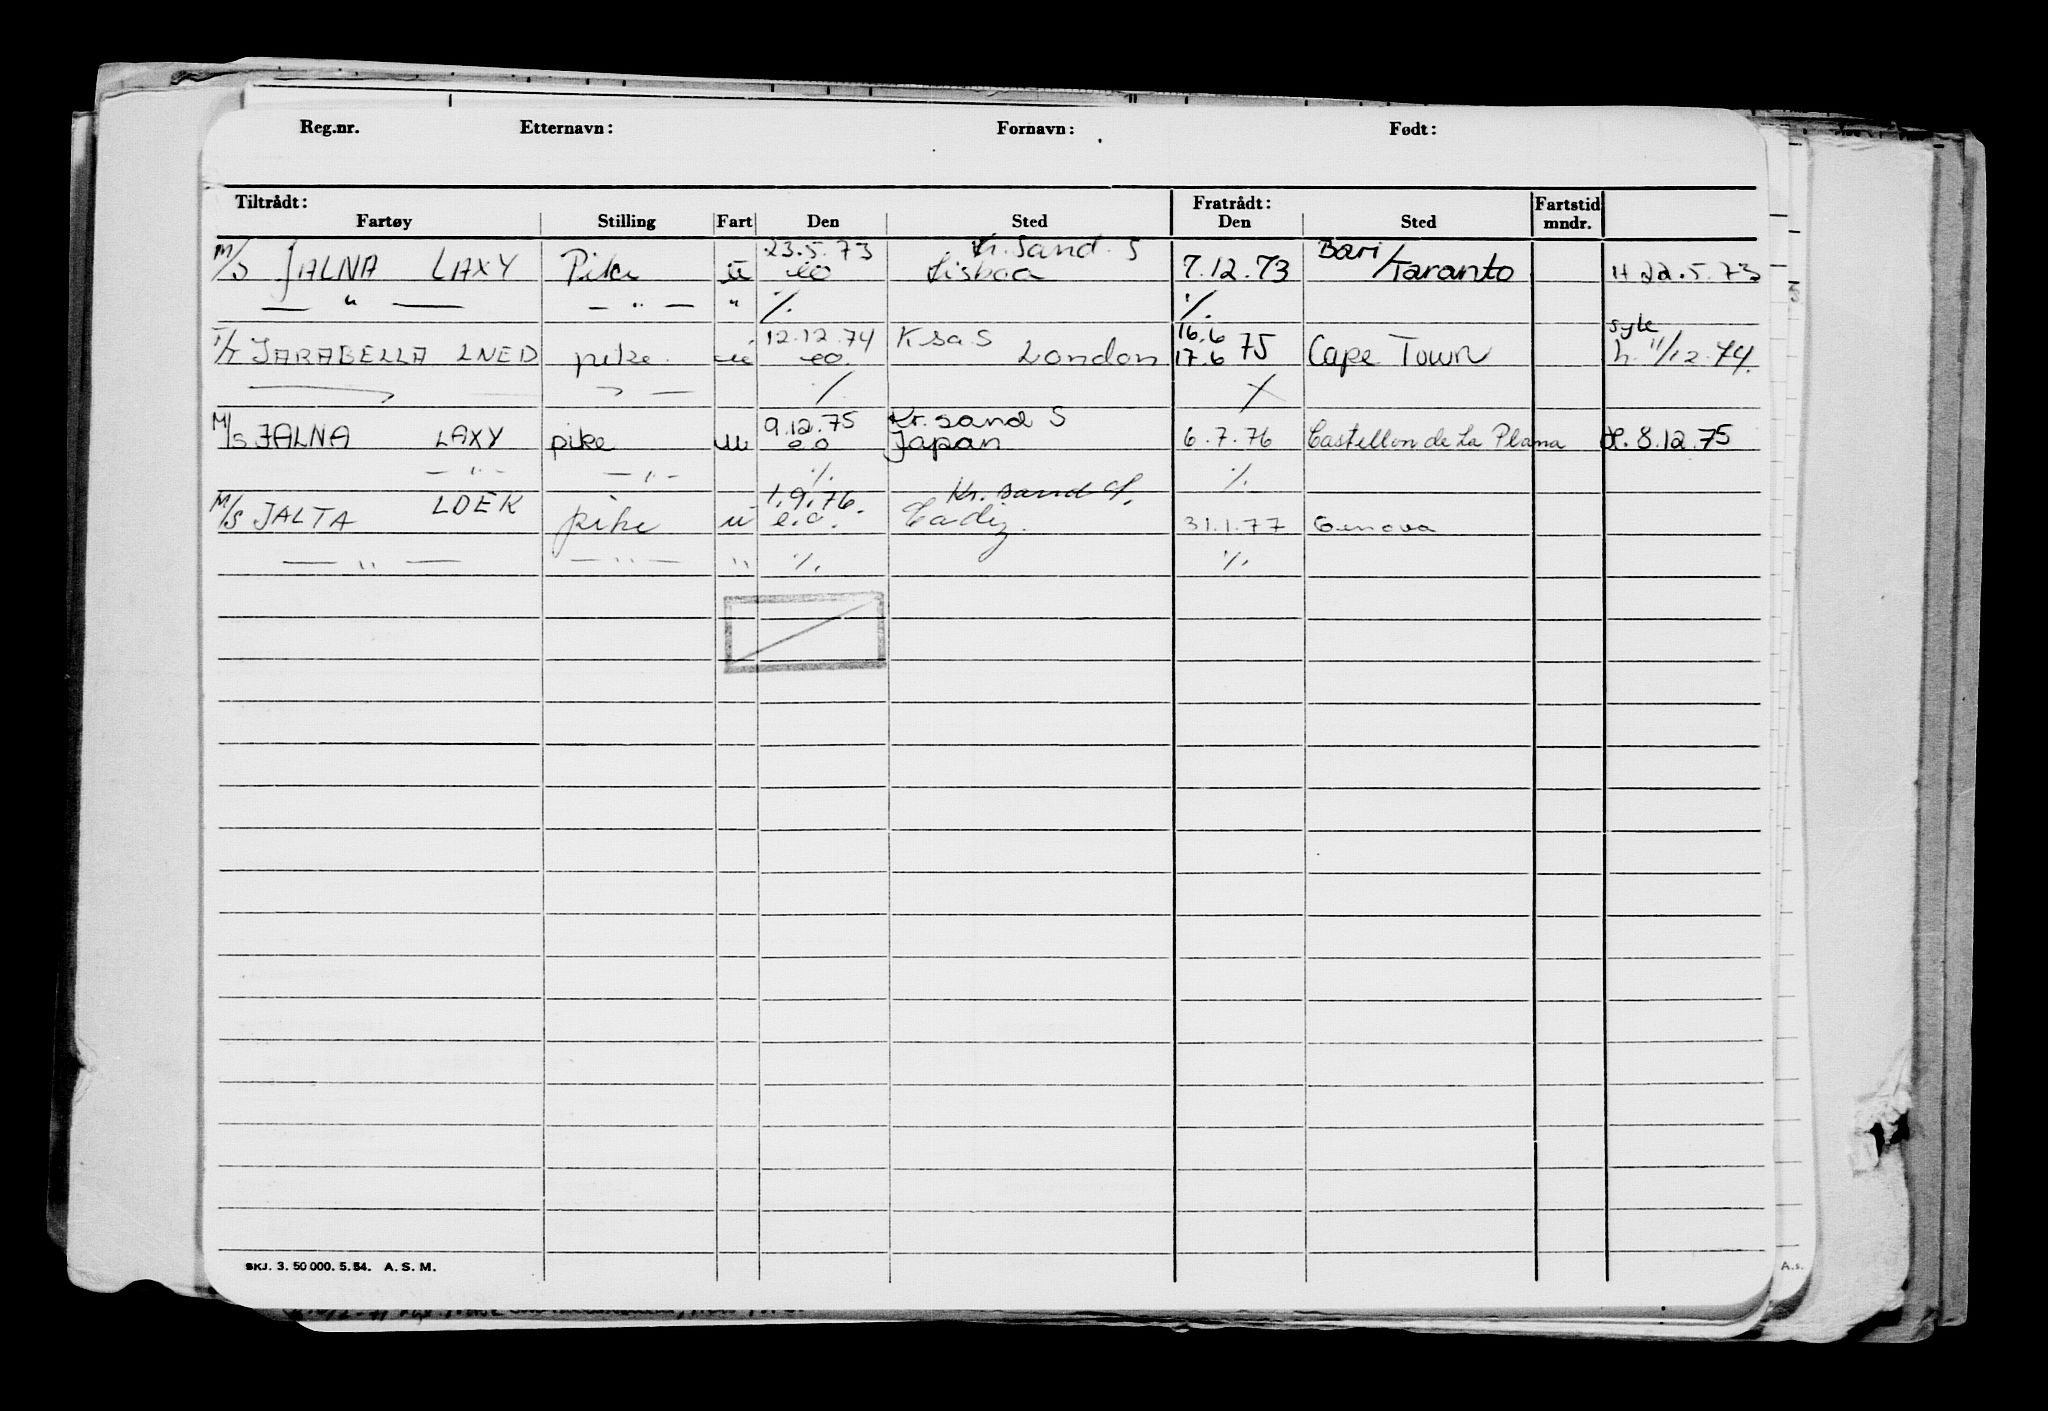 Reg.nr. Etternavn: Fornavn: Født:
Tiltrådt: Fratrådt: Fartstid
Fartøy Stilling Fart Den Sted Den Sted mndr.
23.5.73 Kr. Sand. S Bari/
M/S JALNA LAXY Pike ü eo Lisboa 7.12.73 Taranto H 22.5.73
— " — — " — " ./. ./.
12.12.74 K sa S 16.6 syke
T/T JARABELLA LNED pike. ü eo. London 17.6 75 Cape Town h. 11/12.74.
./.
9.12.75 Kr. sand S
M/S JALNA LAXY pike ü eo Japan 6.7.76 Castellon de La Plana H. 8.12.75
— " — — " — ./. ./.
1.9.76. Kr. sand S.
M/S JALTA LDEK pike ü e.o. Cadiz. 31.1.77 Genova
— " — — " — " ./. ./.
SKJ. 3. 50 000. 5. 54. A. S. M.
A.s.